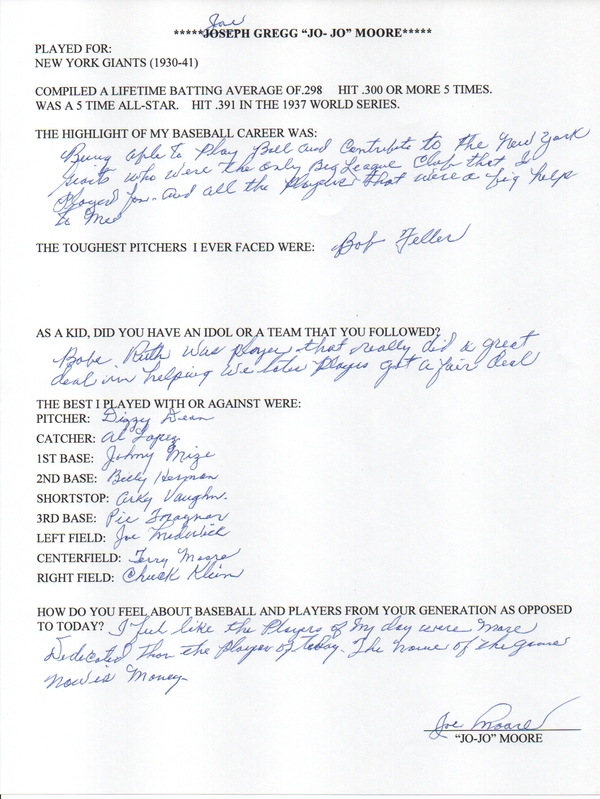 Joe
*****JOSEPH GREGG “JO- JO” MOORE*****
PLAYED FOR:
NEW YORK GIANTS (1930-41)
COMPILED A LIFETIME BATTING AVERAGE OF.298 HIT .300 OR MORE 5 TIMES.
WAS A 5 TIME ALL-STAR. HIT .391 IN THE 1937 WORLD SERIES.
THE HIGHLIGHT OF MY BASEBALL CAREER WAS:
Being able to Play Ball and Contribute to the New York
Giants who were the only Big League Club that I
Played for. And all the Players that were a big help
to Me
THE TOUGHEST PITCHERS I EVER FACED WERE: Bob Feller
AS A KID, DID YOU HAVE AN IDOL OR A TEAM THAT YOU FOLLOWED?
Babe Ruth was player that really did a great
deal in helping we later Players got a fair deal
THE BEST I PLAYED WITH OR AGAINST WERE:
PITCHER: Dizzy Dean
CATCHER: Al Lopez
1ST BASE: Johnny Mize
2ND BASE: Billy Herman
SHORTSTOP: Arky Vaughn.
3RD BASE: Pie Traynor
LEFT FIELD: Joe Medwick
CENTERFIELD: Terry Moore
RIGHT FIELD: Chuck Klein
HOW DO YOU FEEL ABOUT BASEBALL AND PLAYERS FROM YOUR GENERATION AS OPPOSED
TO TODAY? I feel like the Players of My day were More
Dedicated than the Player of today. The name of the game
now is Money.
Joe Moore
“JO-JO” MOORE